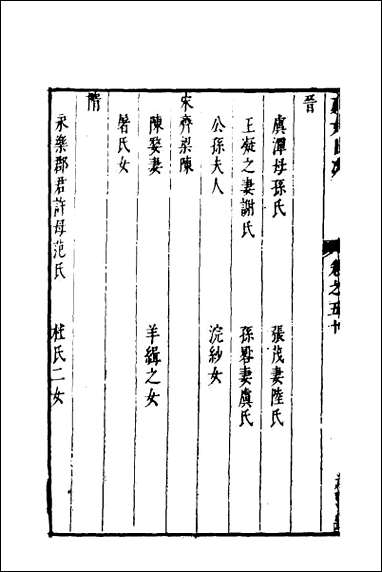 卷之五十
晉
虞潭母孫氏　張茂妻陸氏
王凝之妻謝氏　孫晷妻虞氏
公孫夫人　浣紗女
宋齊梁陳
陳婺妻　羊緝之女
屠氏女
隋
永樂郡君許母范氏　杜氏二女